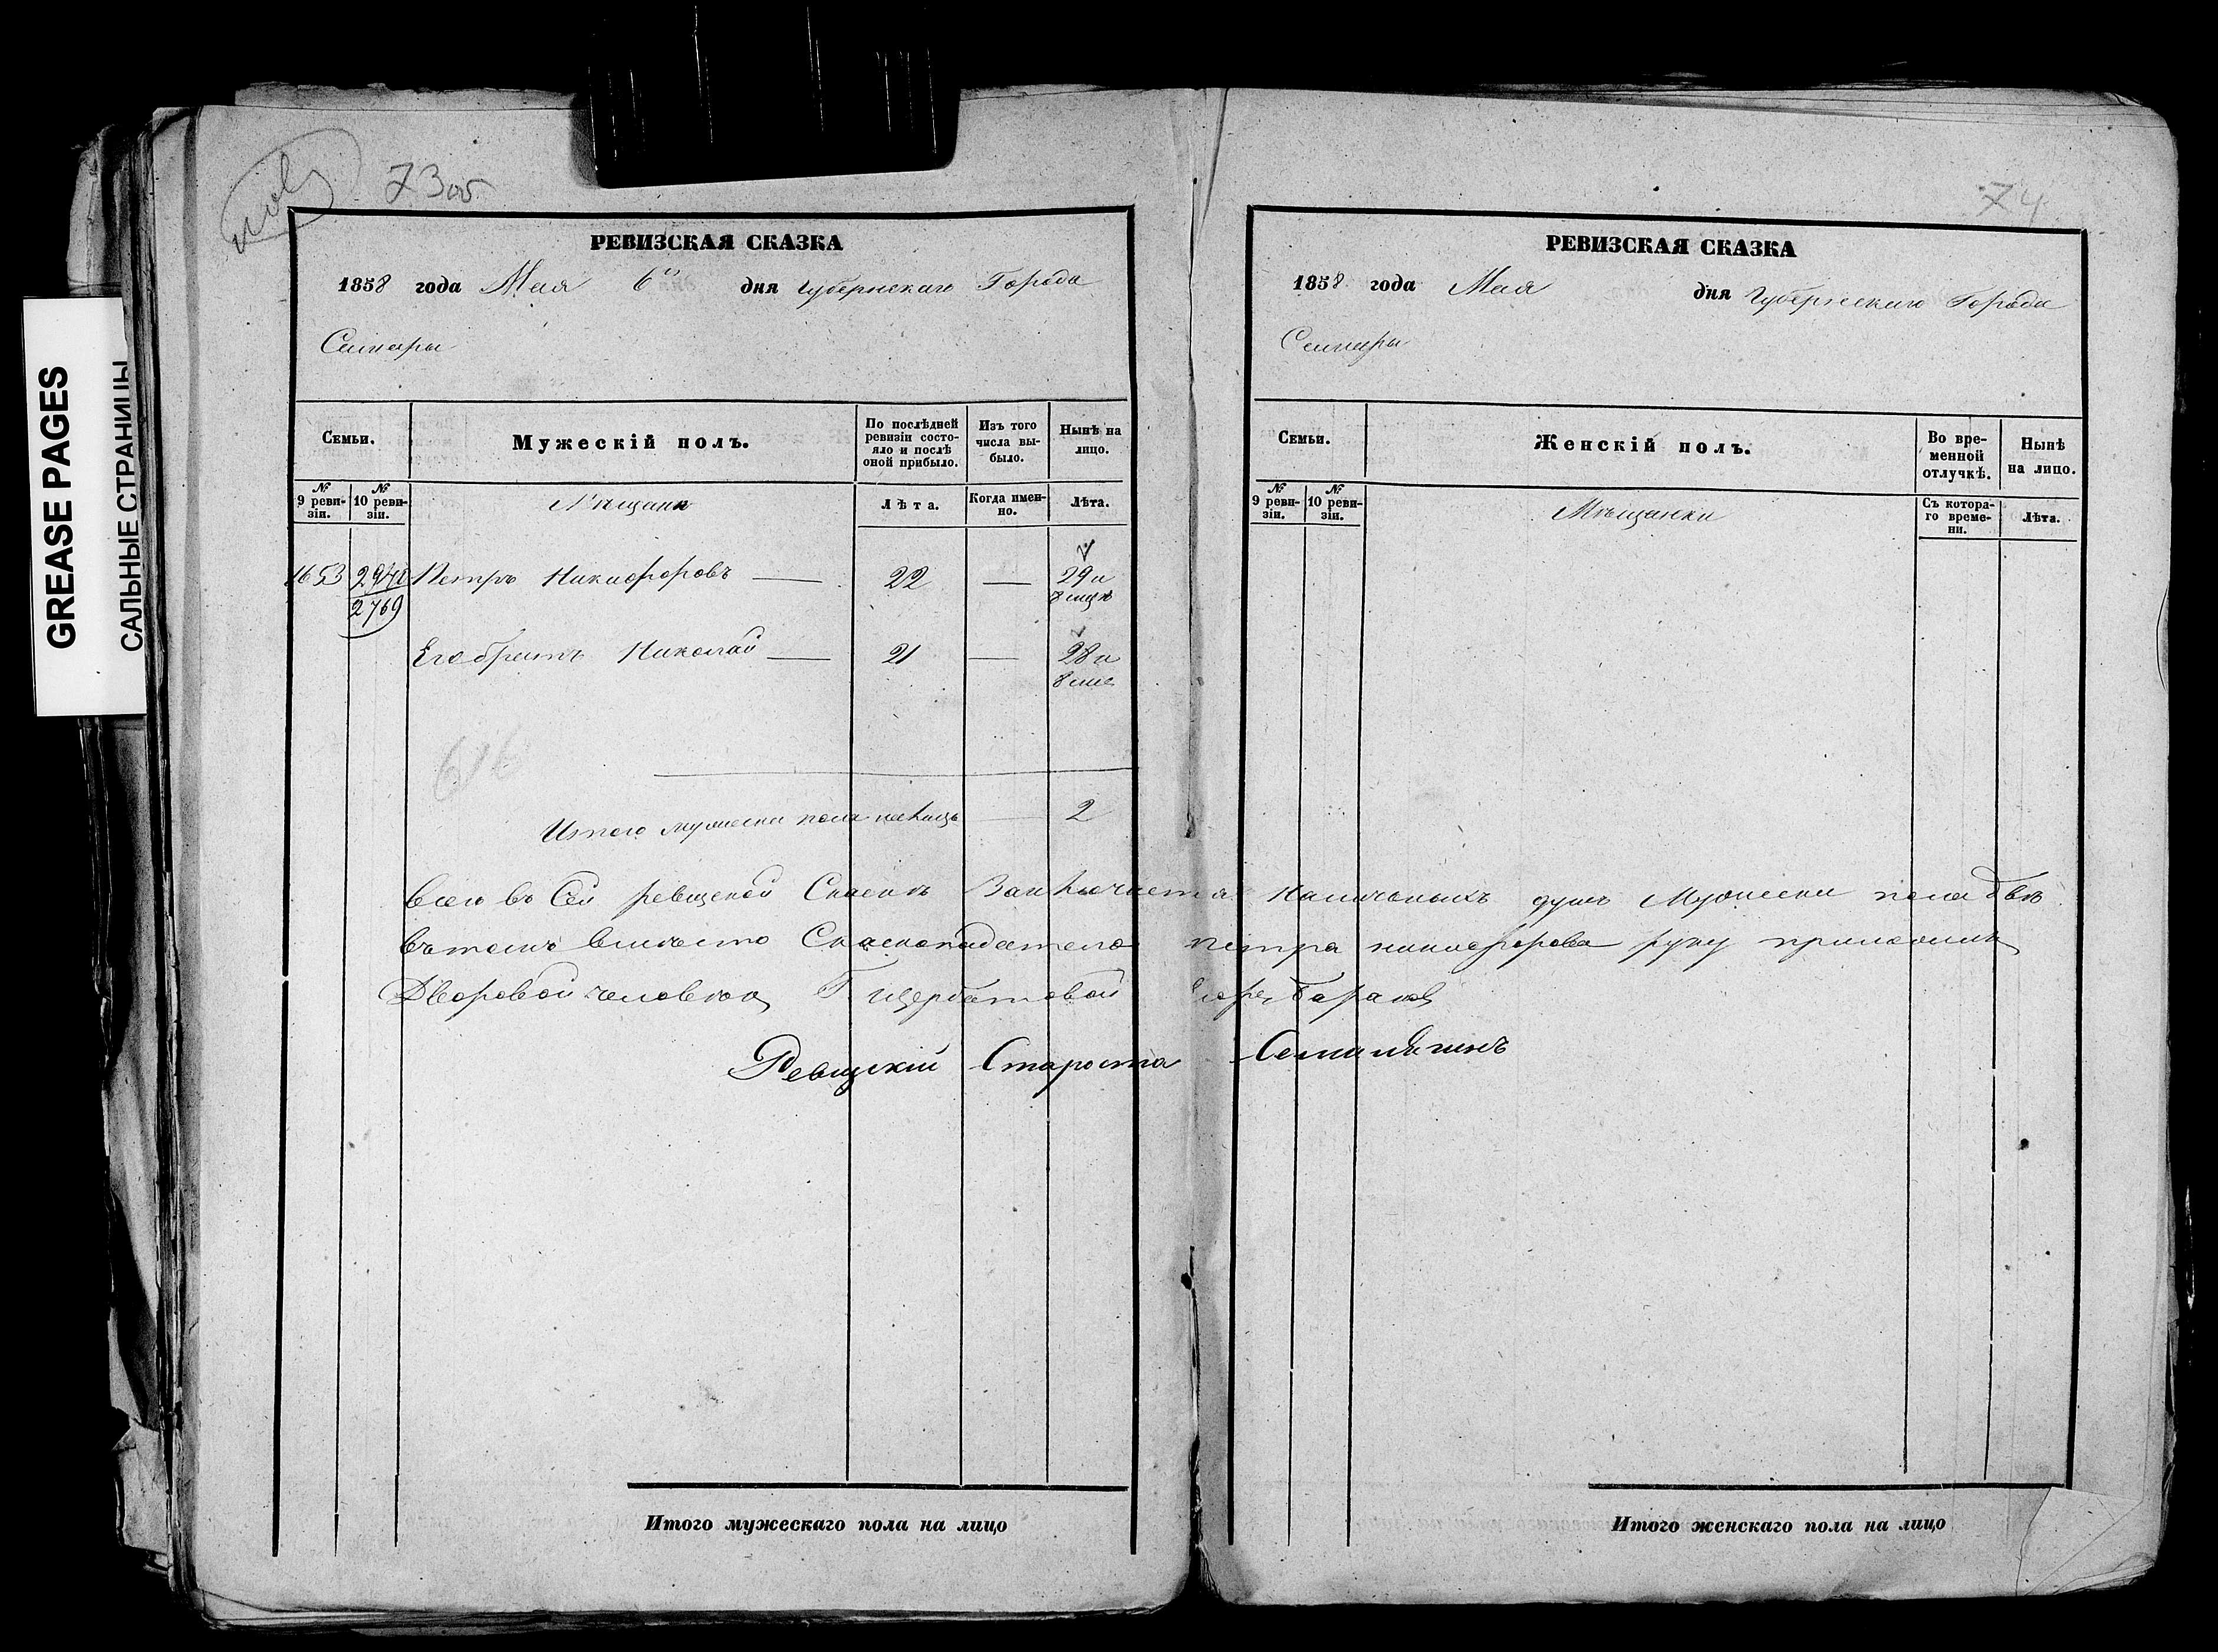 GREASE PAGES
САЛЬНЫЕ СТРАНИЦЫ
73об
РЕВИЗСКАЯ СКАЗКА
1858 года Мая 6го дня Губернскаго Города
Самары
Семьи.
Мужескій полъ.
По послѣдней ревизіи состо-
яло и послѣ оной прибыло.
Изъ того числа вы-
было.
Нынѣ на лицо.
№ 9 реви-
зіи.
№ 10 реви-
зіи.
Мѣщане
Лѣта.
Когда имен-
но.
Лѣта.
1653 2940 Петръ Никифоровъ — 22 — 29 и
2769 8 мцъ
Его братъ Николай — 21 — 28 и
8 мце
616
Итого мужеска пола на Лицо — 2
Всего въ Сей ревизской Сказкѣ Заключается Наличныхъ душъ Мужеска пола двѣ
въ томъ вмѣсто Сказкоподателя петра никифорова руку приложилъ
Дворовой человѣкъ Г. щербатовой
Ревизскій Староста
74
РЕВИЗСКАЯ СКАЗКА
1858 года Мая дня Губернскаго Города
Самары
Семьи.
Женскій полъ.
Во вре-
менной отлучкѣ.
Нынѣ на лицо.
№ 9 реви-
зіи.
№ 10 реви-
зіи.
Мѣщанки
Съ котора-
го време-
ни.
Лѣта.
Итого мужескаго пола на лицо
Итого женскаго пола на лицо